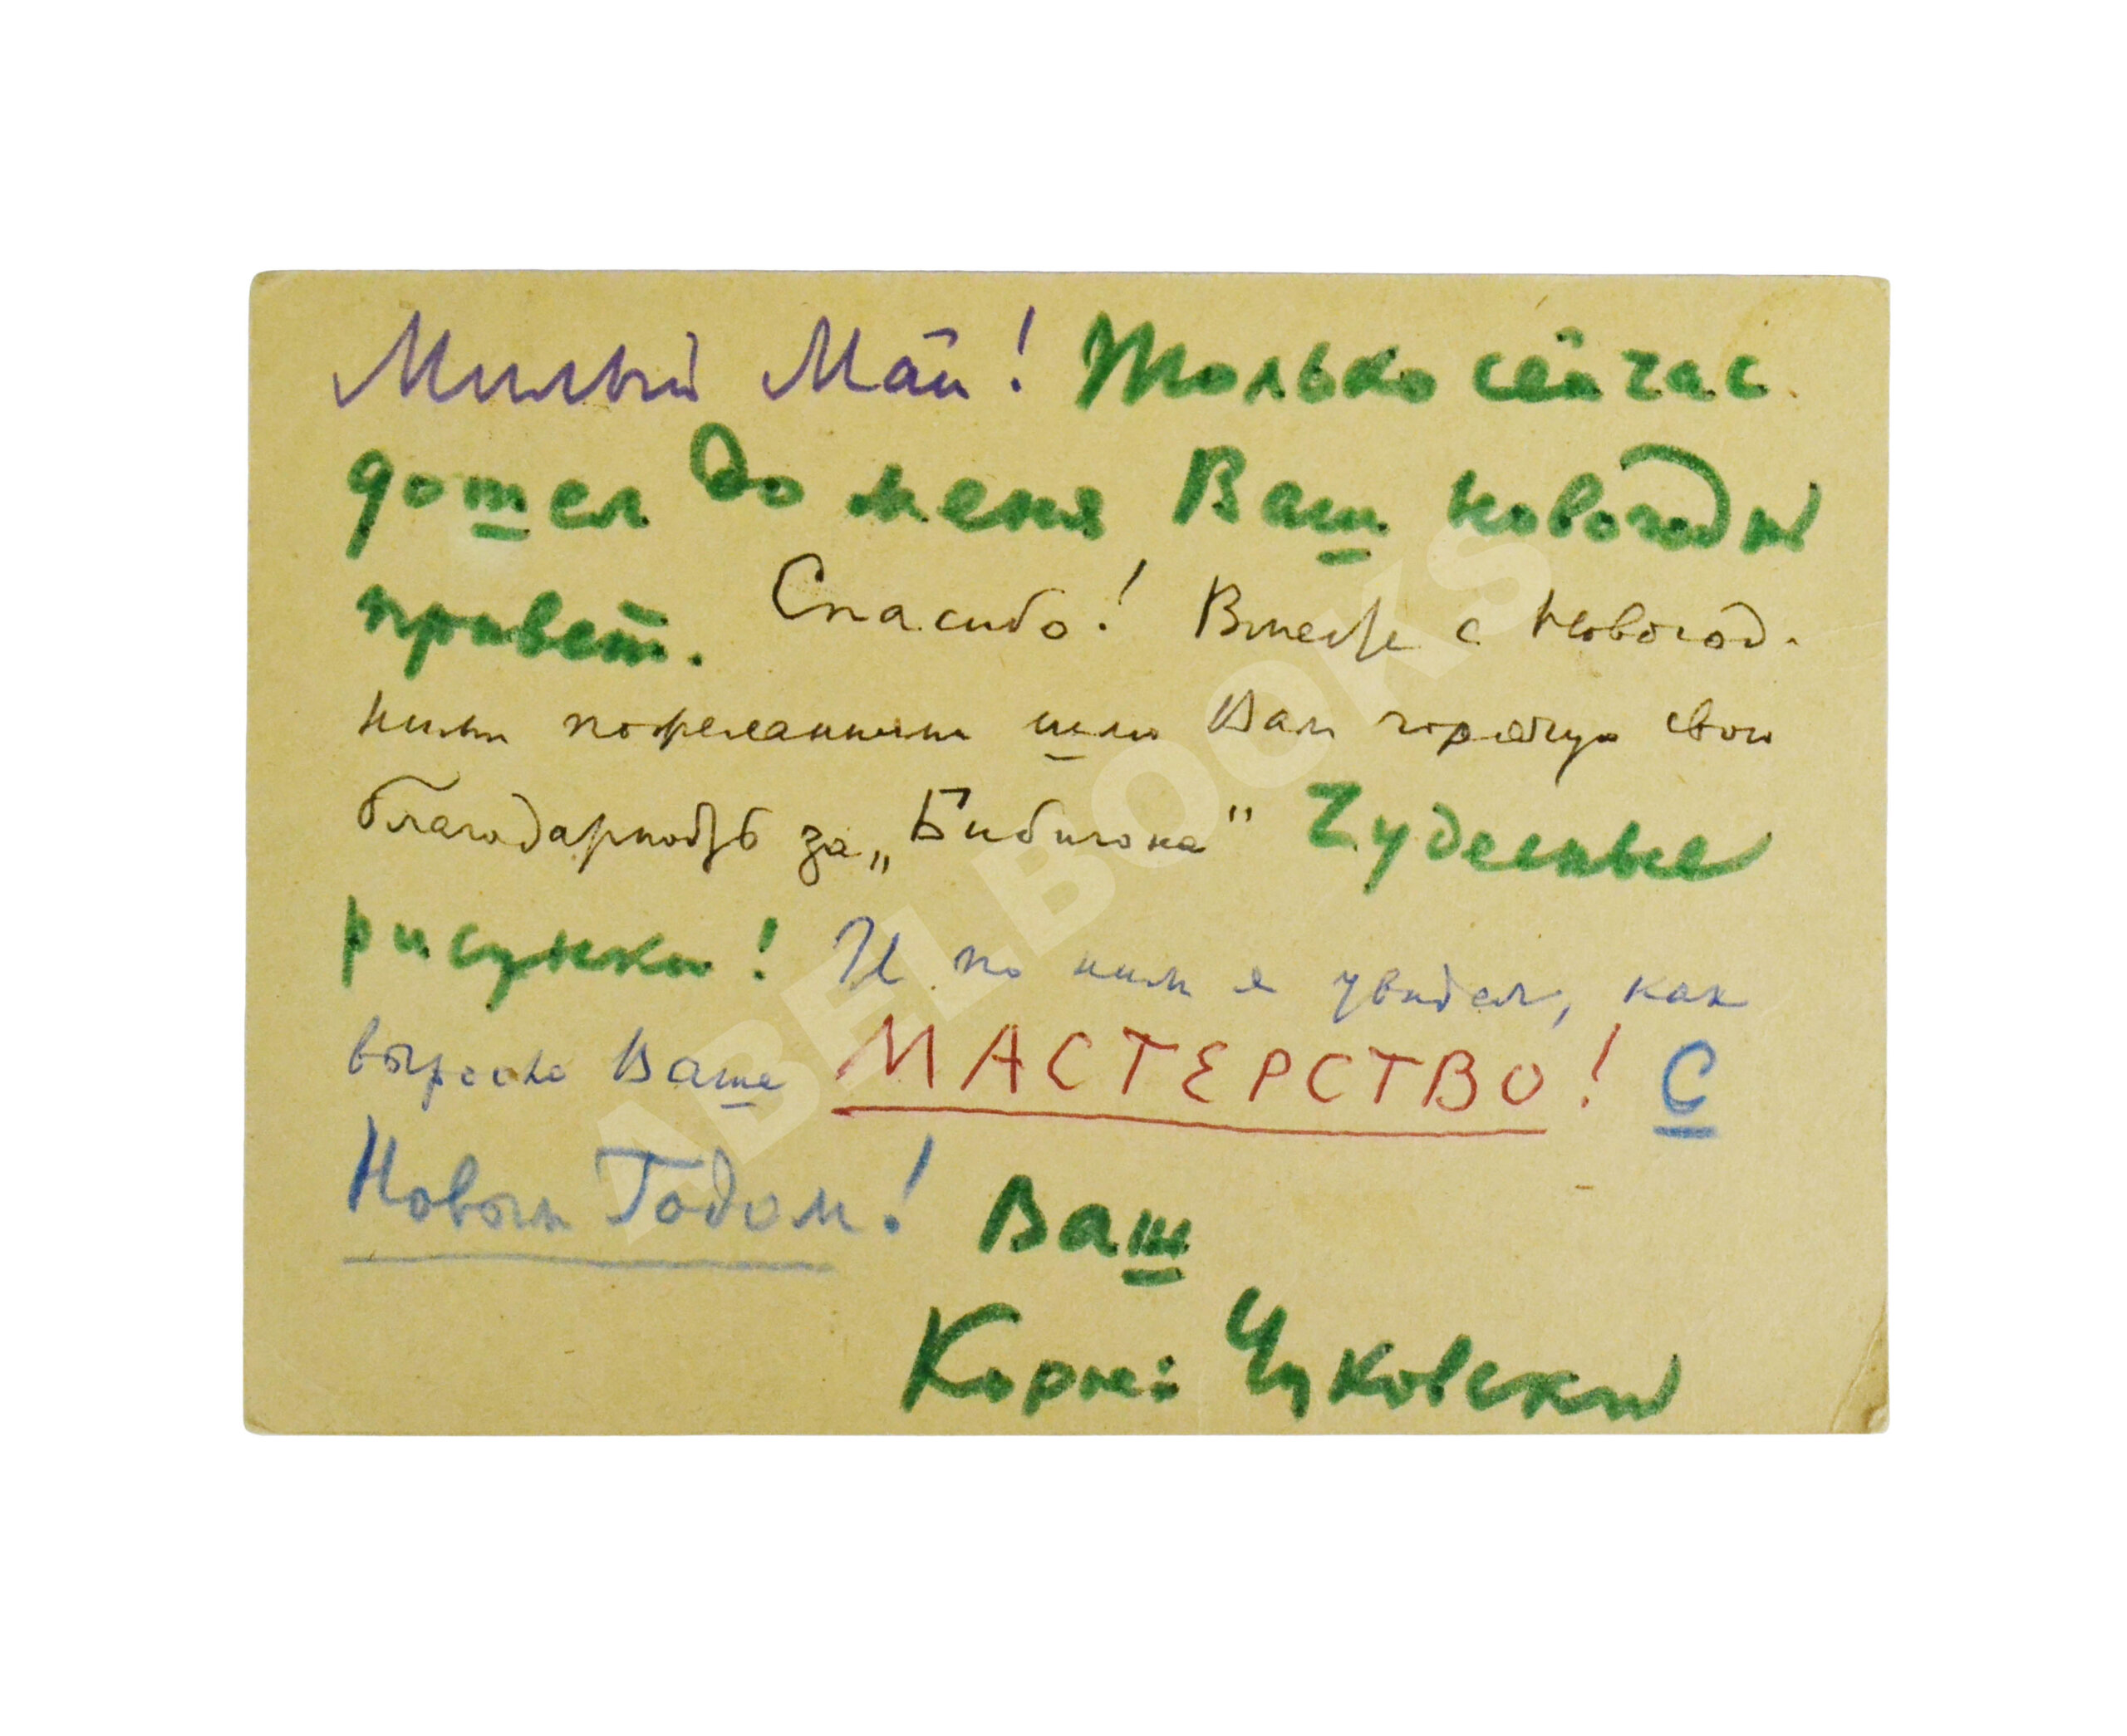 Милый Май! Только сейчас
дошел до меня Ваш новогодн
привет. Спасибо! Вместе с новогод-
ними пожеланиями шлю Вам горячую свою
благодарность за „Бибигона" Чудесные
рисунки! И по ним я увидел, как
выросло Ваше МАСТЕРСТВО! С
Новым Годом! Ваш
Корней Чуковский
ABELBOOKS